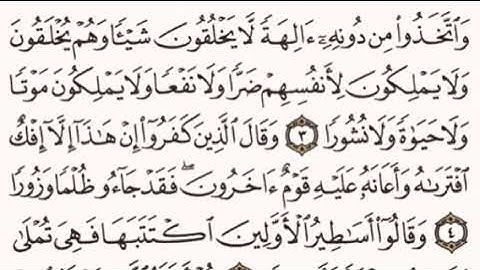 وَٱتَّخَذُوا۟ مِن دُونِهِۦٓ ءَالِهَةً لَّا يَخْلُقُونَ شَيْـًٔا وَهُمْ يُخْلَقُونَ
وَلَا يَمْلِكُونَ لِأَنفُسِهِمْ ضَرًّا وَلَا نَفْعًا وَلَا يَمْلِكُونَ مَوْتًا
وَلَا حَيَوٰةً وَلَا نُشُورًا ٣ وَقَالَ ٱلَّذِينَ كَفَرُوٓا۟ إِنْ هَـٰذَآ إِلَّآ إِفْكٌ
ٱفْتَرَىٰهُ وَأَعَانَهُۥ عَلَيْهِ قَوْمٌ ءَاخَرُونَ ۖ فَقَدْ جَآءُو ظُلْمًا وَزُورًا
٤ وَقَالُوٓا۟ أَسَـٰطِيرُ ٱلْأَوَّلِينَ ٱكْتَتَبَهَا فَهِىَ تُمْلَىٰ